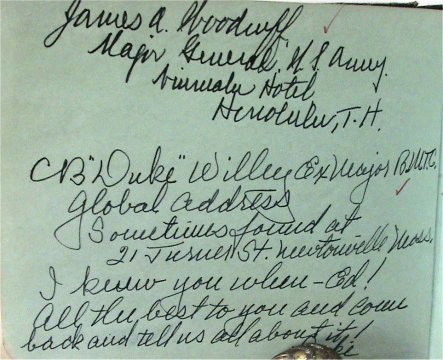 James A. Woodruff
Major General, U.S. Army.
Niumalu Hotel
Honolulu, T.H.
CB "Duke" Willey Ex Major
Global Address
Sometimes found at
21 Turner St. Newtonville Mass.
I knew you when - Ed!
All the best to you and come
back and tell us all about it!